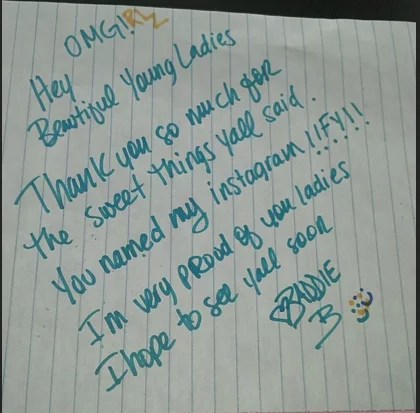 OMG! RLZ
Hey
Beautiful Young Ladies
Thank you so much for
the sweet things yall said.
You named my instagram !!FYI!!
I'm very proud of you ladies
I hope to see yall soon
BADDIE
B